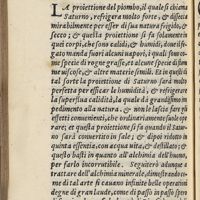 LA proiettione del piombo, il quale si chiama
Saturno, refrigera molto forte, & dissecca
mirabilmente per esser di sua natura frigido, &
secco; & questa proiettione si fa solamente in
quei corpi, che sono calidi, & humidi, domitifi-
gato manda fuori alcuni vapori, i quali sono co-
me specie di rogne grasse, et alcune specie di hu-
mori falsose, & altre materie simili. Et in questi
tal sorte la proiettione di Saturno sarà molto
perfetta per essicar le humidità, & refrigerare
la superflua calidità, la quale dà grandissima
molestia alla natura. & non le lascia fare gli
effetti convenienti, che ordinariamente suole ope-
rare; et questa proiettione si fa quando il Satur-
no sarà convertito in sale; & dipoi ridotto in
quinta essentia, con acqua vita, & destillato; &
questo basti in quanto all'alchimia dell'huomo,
per farlo incorruttibile. Seguiterò adunque a
trattare dell'alchimia minerale, dimostrando co-
me di tal arte si causano infinite belle operationi
degne di gran laude, come di passo in passo si po-